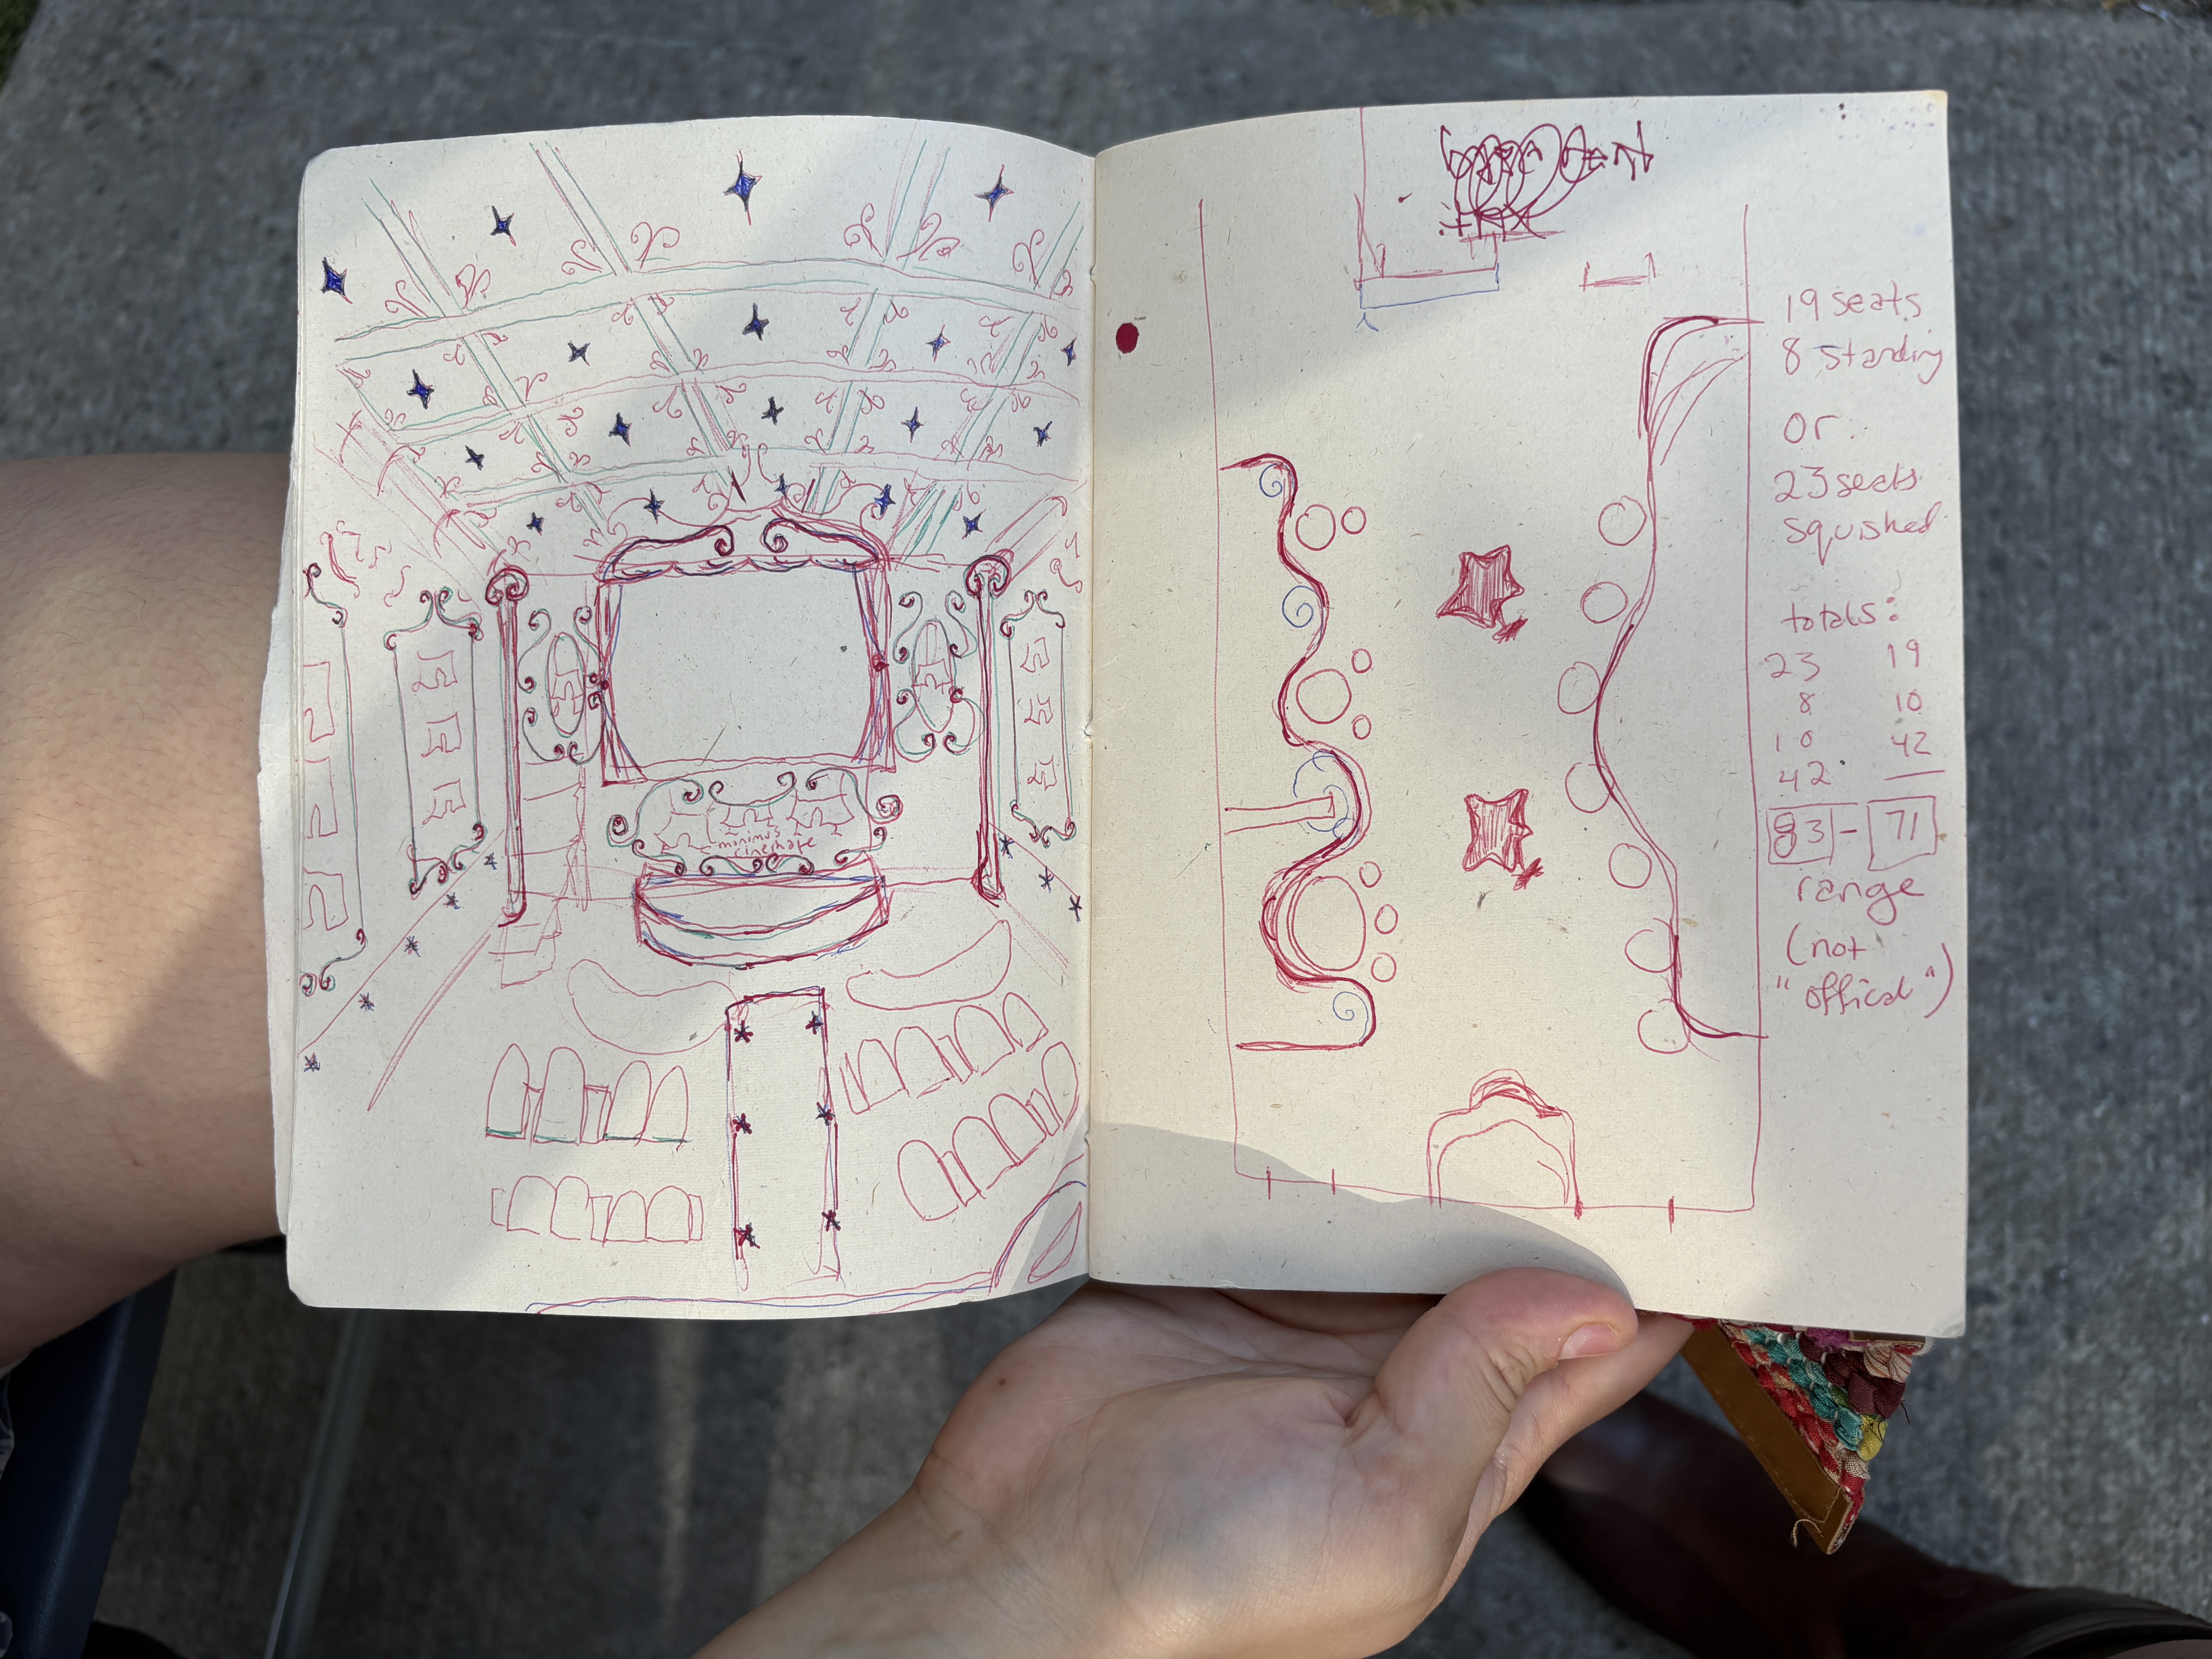 minimus
cineshape
19 seats
8 standing
or
23 seats
squished
totals:
23 19
8 10
10 42
42
83 - 71
range
(not
"offical")